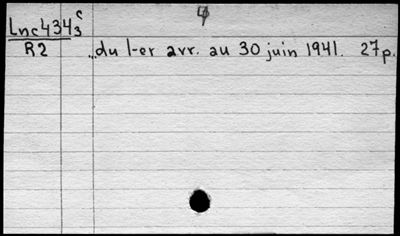 4
Lnc434 c/3
R2 ...du 1-er avr. au 30 juin 1941. 27p.